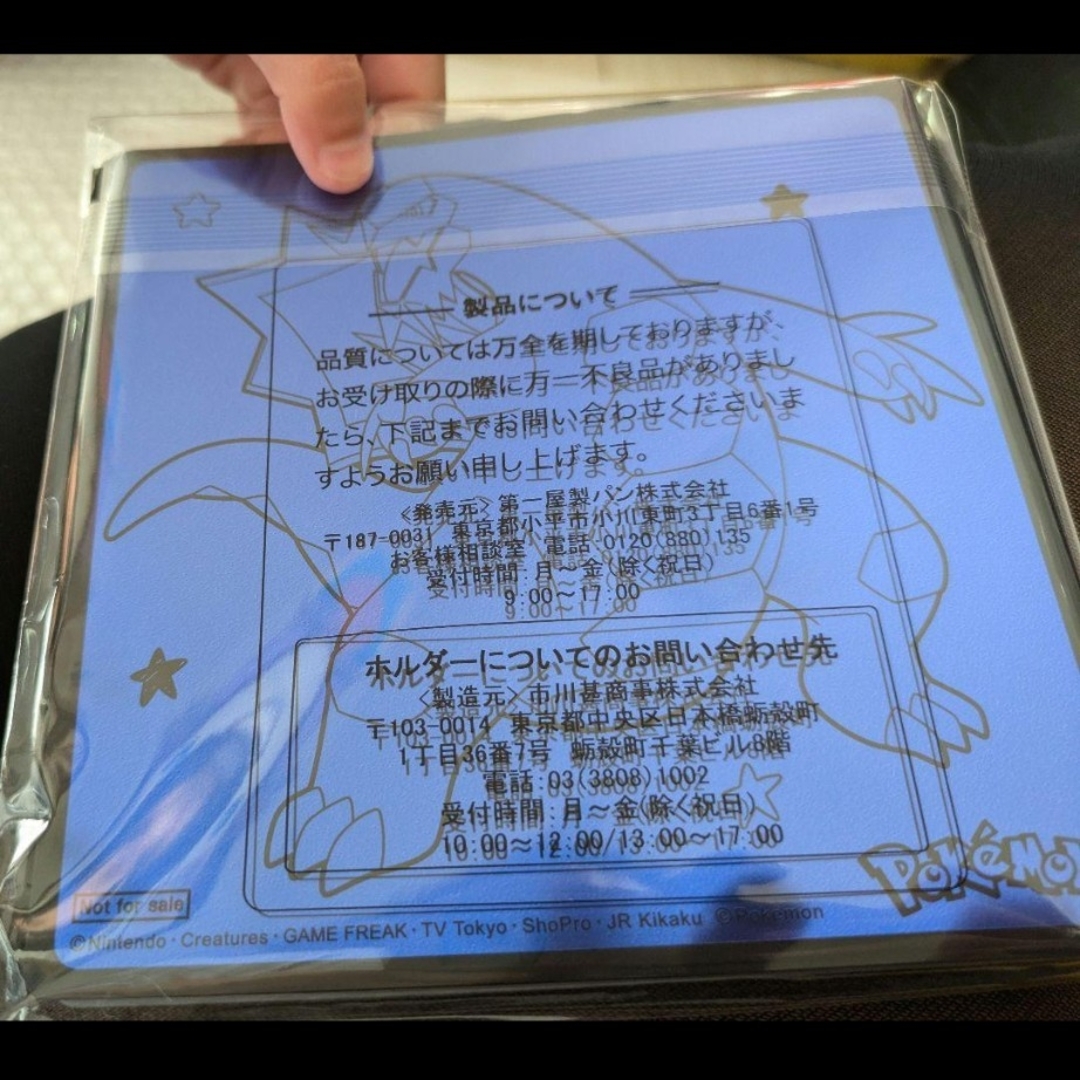 製品について
品質については万全を期しておりますが、
お受け取りの際に万一不良品がありまし
たら、下記までお問い合わせくださいま
すようお願い申し上げます。
<発売元>第一屋製パン株式会社
〒187-0031 東京都小平市小川東町3丁目6番1号
お客様相談室 電話:0120(880)135
受付時間:月~金(除く祝日)
9:00~17:00
ホルダーについてのお問い合わせ先
<製造元>市川甚商事株式会社
〒103-0014 東京都中央区日本橋蛎殻町
1丁目36番7号 蛎殻町千葉ビル8階
電話:03(3808)1002
受付時間:月~金(除く祝日)
10:00~12:00/13:00~17:00
POKéMON
Not for sale
©Nintendo・Creatures・GAME FREAK・TV Tokyo・ShoPro・JR Kikaku ©Pokémon